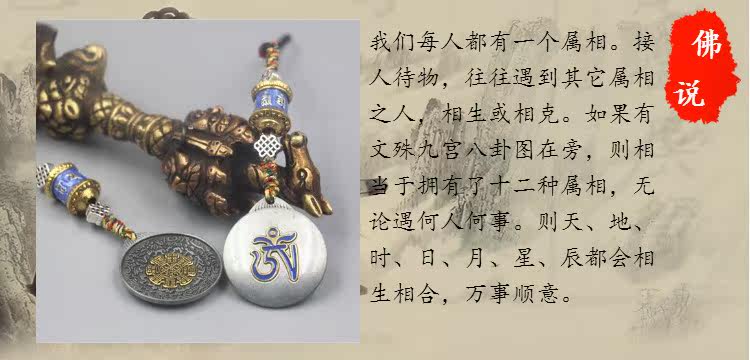 佛说
我们每人都有一个属相。接
人待物，往往遇到其它属相
之人，相生或相克。如果有
文殊九宫八卦图在旁，则相
当于拥有了十二种属相，无
论遇何人何事。则天、地、
时、日、月、星、辰都会相
生相合，万事顺意。
ༀ